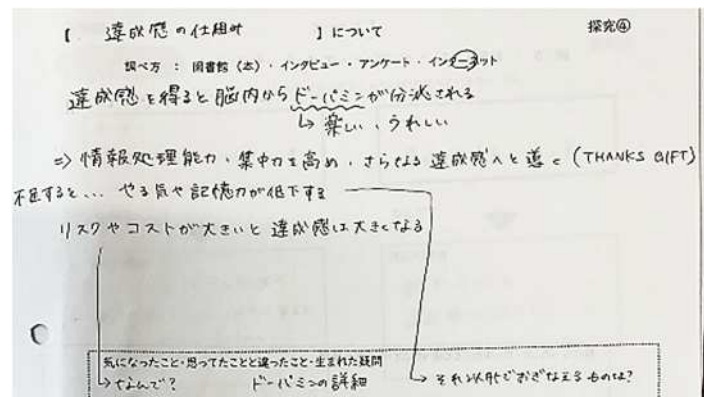 【 達成感の仕組み 】について 探究④
調べ方 : 図書館（本）・インタビュー・アンケート・インターネット
達成感を得ると脳内からドーパミンが分泌される
↳ 楽しい、うれしい
⇒ 情報処理能力・集中力を高め、さらなる達成感へと導く (THANKS GIFT)
不足すると... やる気や記憶力が低下する
リスクやコストが大きいと達成感は大きくなる
気になったこと・思ってたことと違ったこと・生まれた疑問
↳ なんで? ドーパミンの詳細 ↳ それ以外でおぎなえるものは?